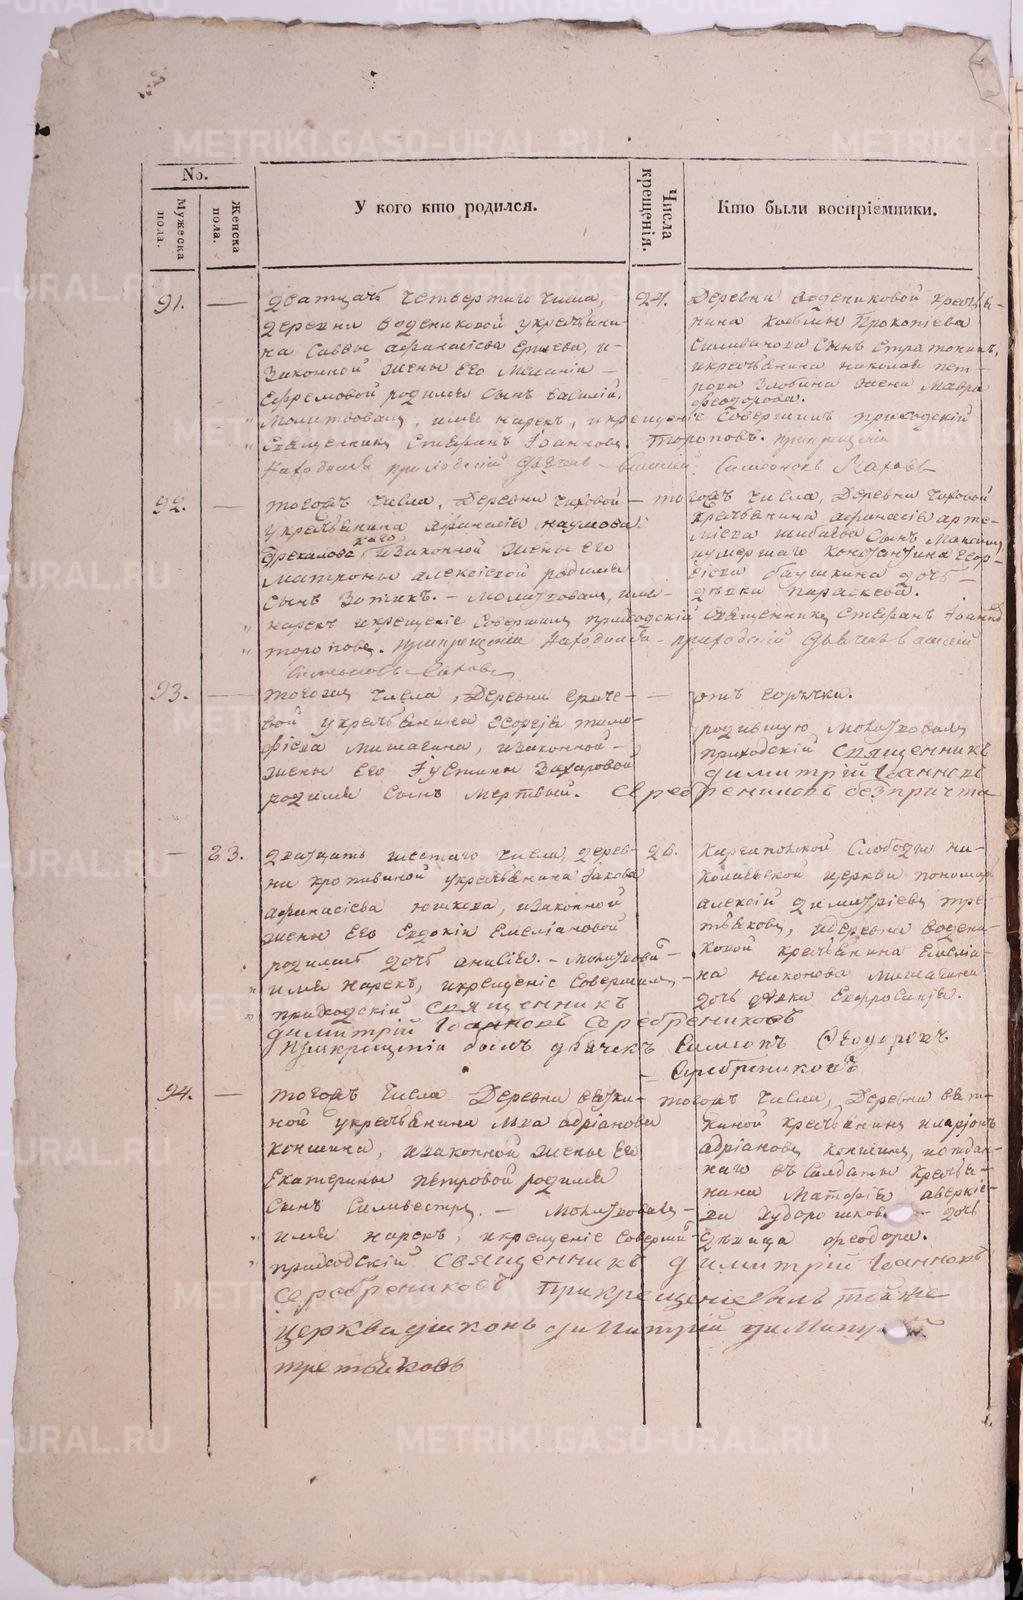 METRIKI.GASO-URAL.RU
No.
Мужеска пола.
Женска пола.
У кого кто родился.
Числа крещенія.
Кто были воспріемники.
91. —
дватцать четвертаго числа,
деревни Водениковой укрестьяни-
на Саввы Афанасіева Ершева, и
законной жены его Меланіи
Ефремовой родился сынъ Василій,
молитвовалъ, имя нарекъ, и крещеніе совершилъ приходскій
священникъ Стефанъ Іоанновъ Тороповъ. при крещеніи
находился приходскій дьячекъ Василій Симеоновъ
24.
Деревни Водениковой крестья-
нина Козьмы Прокопіева
сынъ Стратоникъ,
и крестьянина Николая Пет-
рова Злобина жена Мавра
Феодорова.
92. —
тогожъ числа, деревни
укрестьянина Афанасія Наумова
и законной жены его
Матроны Алексіевой родился
сынъ Зотикъ. — молитвовалъ, имя
нарекъ и крещеніе совершилъ приходскій священникъ Стефанъ Іоанновъ
Тороповъ. при крещеніи находился приходскій дьячекъ Василій
Симеоновъ
— тогожъ числа, Деревни
крестьянина Афанасія Арте-
міева сынъ Максимъ
и умершаго Константина Геор-
гіева Баушкина дочь
дѣвка Параскева.
93. —
тогожъ числа, Деревни
укрестьянина Георгія Тимо-
фіева Мишагина, и законной
жены его Іустины Захаровой
родился сынъ мертвый.
—
родившую молитвовалъ
приходскій священникъ
Димитрій Іоанновъ
Серебрениковъ безпричта
— 23.
двадцать шестаго числа, дерев-
ни Кропивиной укрестьянина Іакова
Афанасіева Юшкова, и законной
жены его Евдокіи Емеліановой
родилась дочь Анисія. — молитвовалъ
имя нарекъ, и крещеніе совершилъ
приходскій священникъ
Димитрій Іоанновъ Серебрениковъ
При крещеніи былъ дьячекъ Симеонъ Ѳеодоровъ
Серебрениковъ
26.
Каргапольской Слободы Ни-
колаевской церкви пономарь
Алексій Димитріевъ Тре-
тьяковъ, и деревни Водени-
ковой крестьянина Емеліа-
на Никонова Мишагина
дочь дѣвка Евфросинія.
94. —
тогожъ числа Деревни
укрестьянина Льва Адріанова
Коншина, и законной жены его
Екатерины Петровой родился
сынъ Сильвестръ. — молитвовалъ
имя нарекъ, и крещеніе совершилъ
приходскій священникъ Димитрій Іоанновъ
Серебрениковъ При крещеніе былъ тойже
церкви діаконъ Димитрій
третьяковъ
— тогожъ числа, Деревни
крестьянинъ Иларіонъ
Адріановъ Коншинъ, и отдан-
наго въ солдаты крестья-
нина Матфія Аверкіе-
ва дочь
дѣвица Феодора.